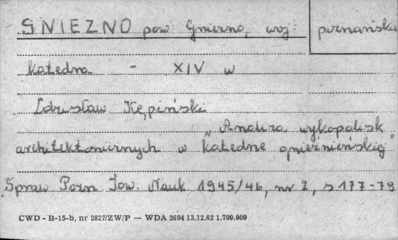 GNIEZNO pow: Gniezno, woj: poznańskie
katedra - XIV w
Zdzisław Kępiński
„Analiza wykopalisk
architektonicznych w katedrze gnieźnieńskiej"
Spraw Pozn Tow. Nauk 1945/46, nr 2, s 177-79
CWD - B-15-b, nr 2827/ZW/P — WDA 2694 13.12.62 1.700.000